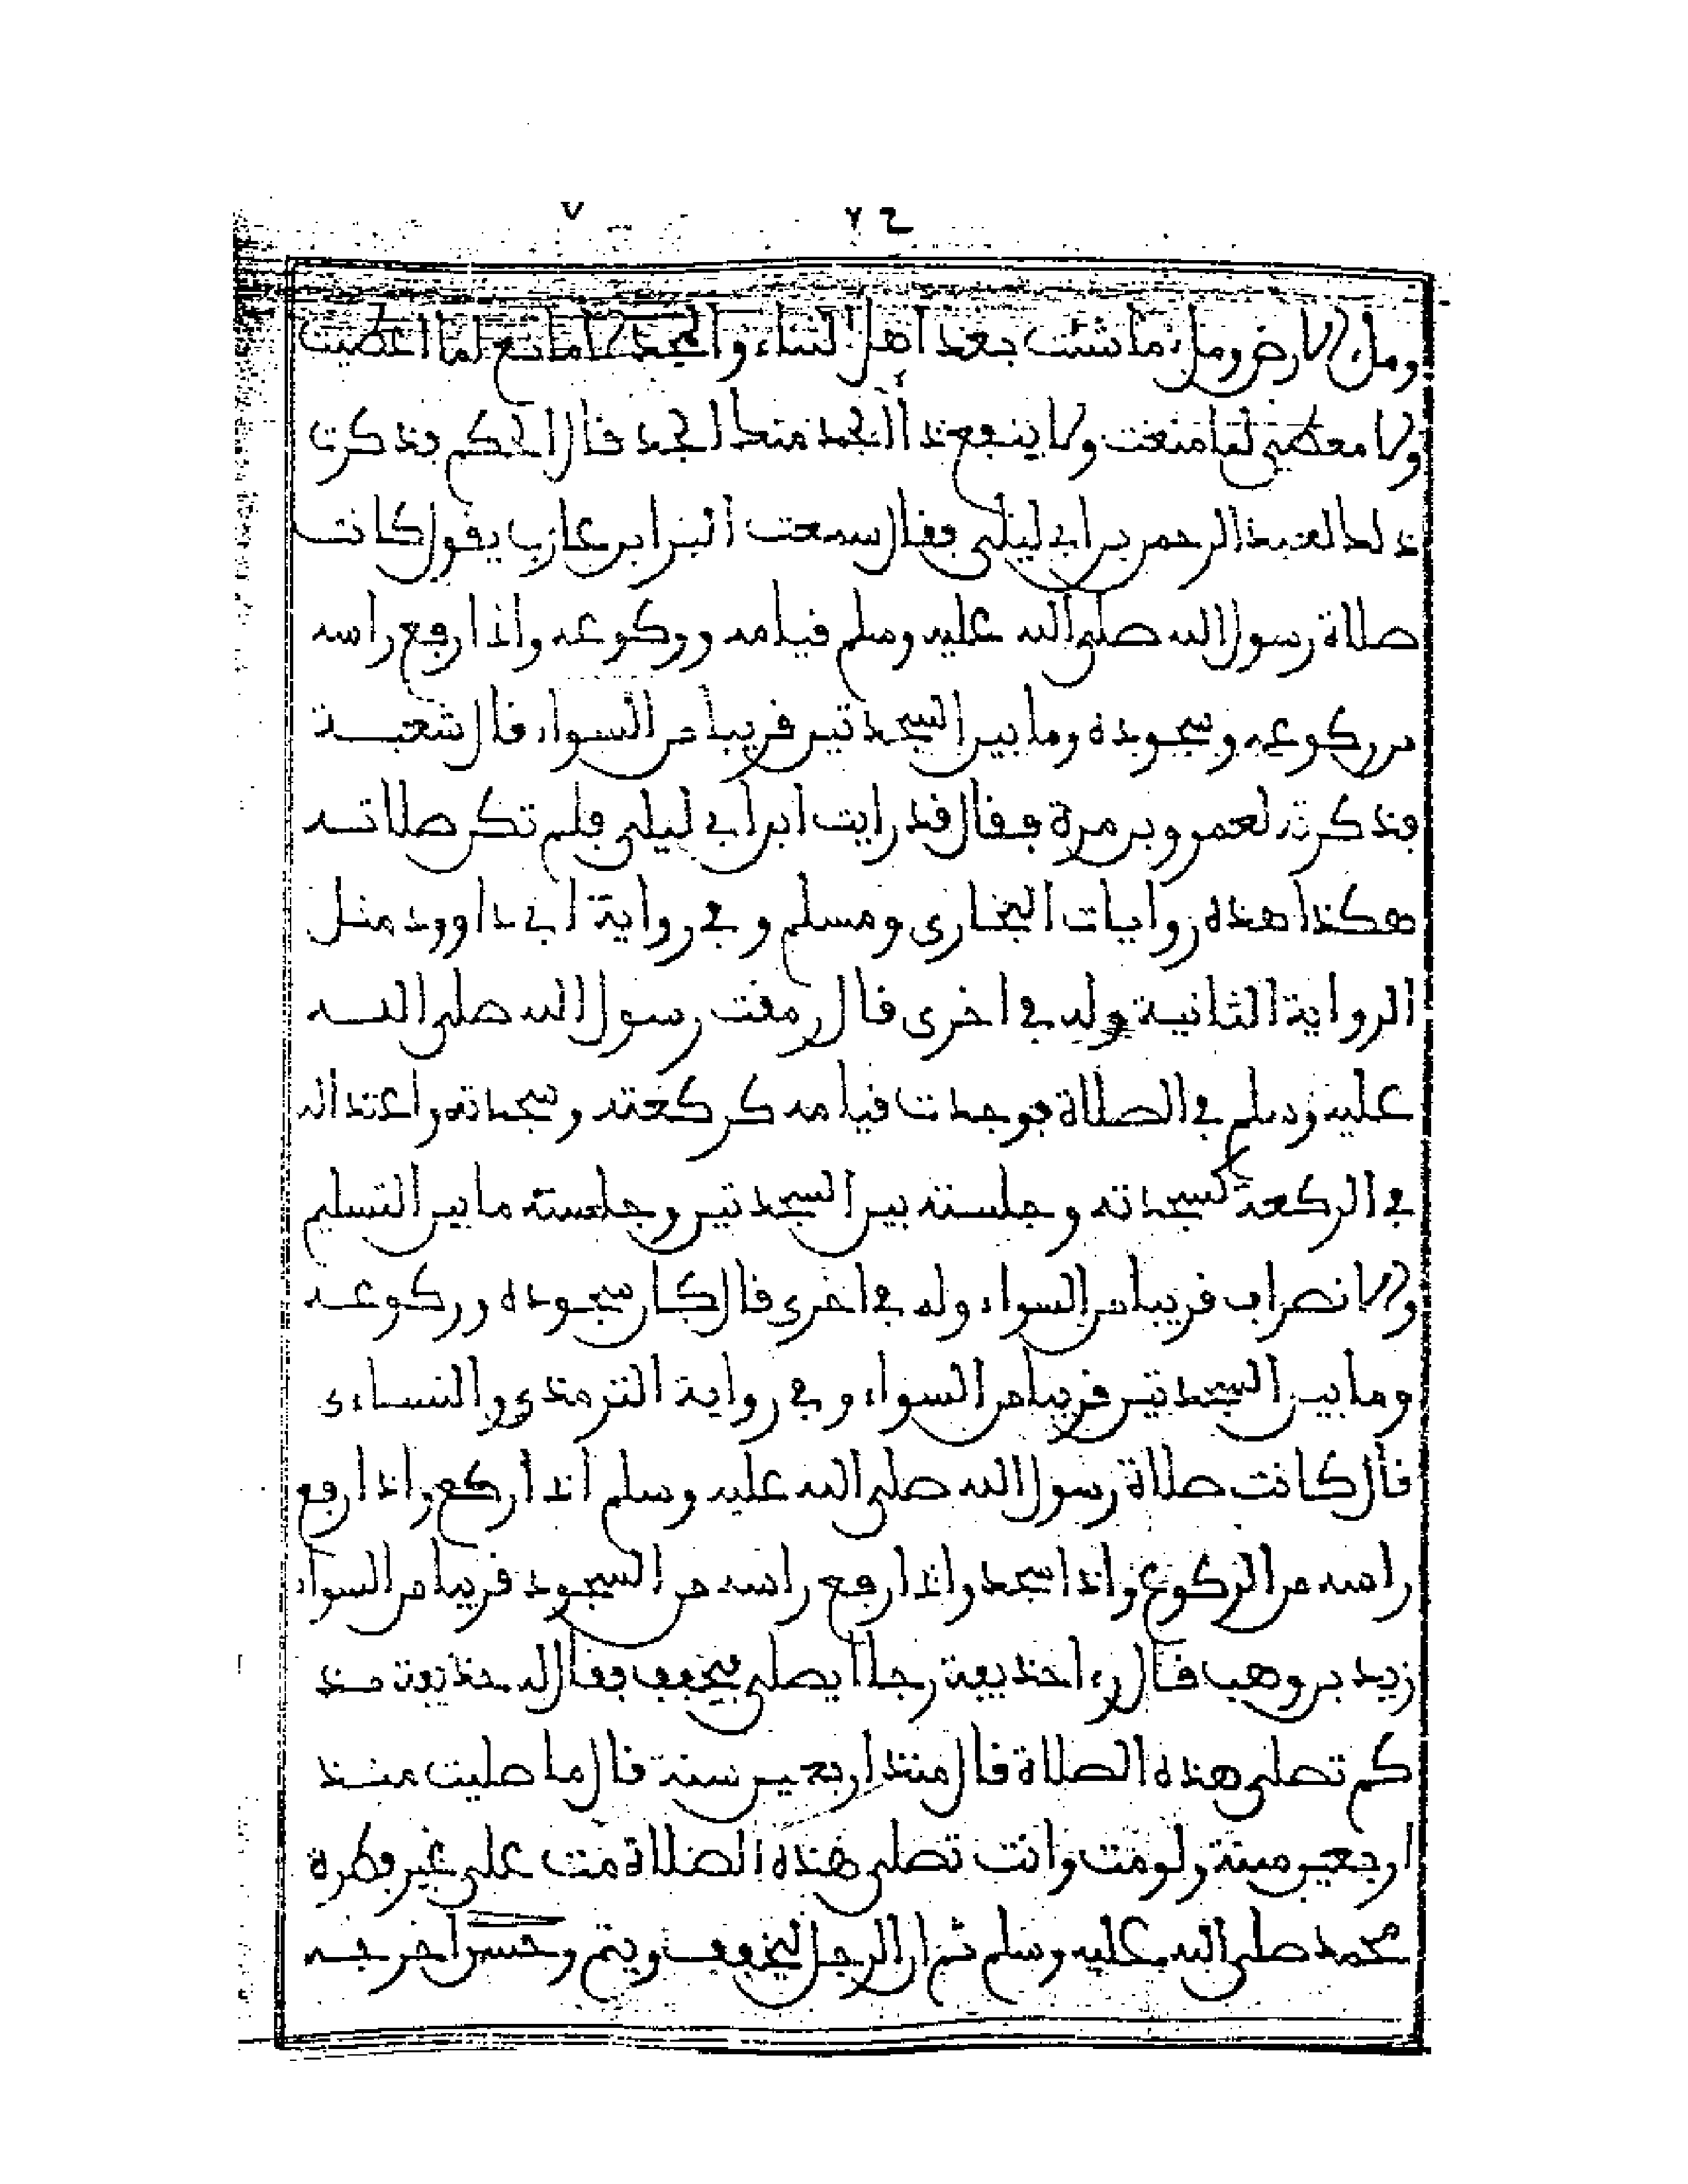 ٧ ٧٤
وملء الارض وملء ما شئت بعد اهل الثناء والمجد لا مانع لما اعطيت
ولا معطي لما منعت ولا ينفع ذا الجد منك الجد قال الحكم فذكرت
ذلك لعبد الرحمن بن ابي ليلى فقال سمعت البرا بن عازب يقول كانت
صلاة رسول الله صلى الله عليه وسلم قيامه وركوعه واذا رفع راسه
من ركوعه وسجوده وما بين السجدتين قريبا من السواء قال شعبة
فذكرته لعمرو بن مرة فقال قد رايت ابن ابي ليلى فلم تكن صلاته
هكذا هذه روايات البخاري ومسلم وفي رواية ابي داوود مثل
الرواية الثانية وله في اخرى قال رمقت رسول الله صلى الله
عليه وسلم في الصلاة فوجدت قيامه كركعته وسجدته واعتداله
في الركعة كسجدته وجلسته بين السجدتين وجلسته ما بين التسليم
والانصراف قريبا من السواء وله في اخرى قال كان سجوده وركوعه
وما بين السجدتين قريبا من السواء وفي رواية الترمذي والنساءي
قال كانت صلاة رسول الله صلى الله عليه وسلم اذا ركع واذا رفع
راسه من الركوع واذا سجد واذا رفع راسه من السجود قريبا من السواء
زيد بن وهب قال رءا حذيفة رجلا يصلي يخفف فقال له حذيفة مند
كم تصلي هذه الصلاة قال منذ اربعين سنة قال ما صليت منذ
اربعين سنة ولو مت وانت تصلي هذه الصلاة مت على غير فطرة
محمد صلى الله عليه وسلم ثم ان الرجل ليخفف ويتم وحسن اخرجه